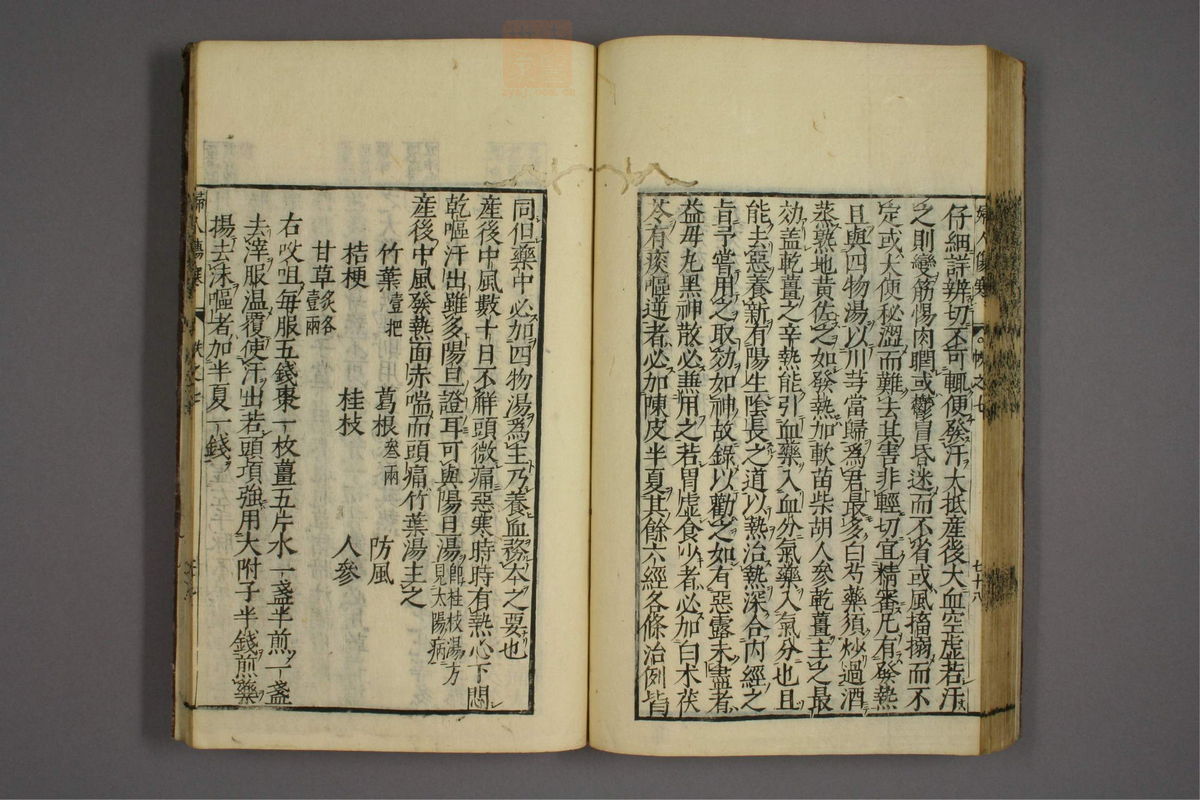 仔細詳辨切不可輒便發汗大抵產後大血空虛若汗
之則變筋惕肉瞤或鬱冒昏迷而不省或風搐搦而不
定或大便秘澀而難去其害非輕切宜精審凡有發熱
且與四物湯以川芎當歸爲君最多白芍藥須炒過酒
蒸熟地黃佐之如發熱加軟苗柴胡人參乾薑主之最
効蓋乾薑之辛熱能引血藥入血分氣藥入氣分也且
能去惡養新有陽生陰長之道以熱治熱深合內經之
旨予嘗用之取効如神故錄以勸之如有惡露未盡者
益母丸黑神散必兼用之若胃虛食少者必加白朮茯
苓有痰嘔逆者必加陳皮半夏其餘六經各條治例皆
婦人傷寒
帙之七
七十八
同但藥中必加四物湯爲主乃養血務本之要也
產後中風數十日不解頭微痛惡寒時時有熱心下悶
乾嘔汗出雖多陽旦證耳可與陽旦湯卽桂枝湯方見太陽病
產後中風發熱面赤喘而頭痛竹葉湯主之
竹葉壹把 葛根叁兩 防風
桔梗 桂枝 人參
甘草炙各壹兩
右㕮咀每服五錢棗一枚薑五片水一盞半煎一盞
去滓服溫覆使汗出若頭項強用大附子半錢煎藥
揚去沫嘔者加半夏一錢
婦人傷寒